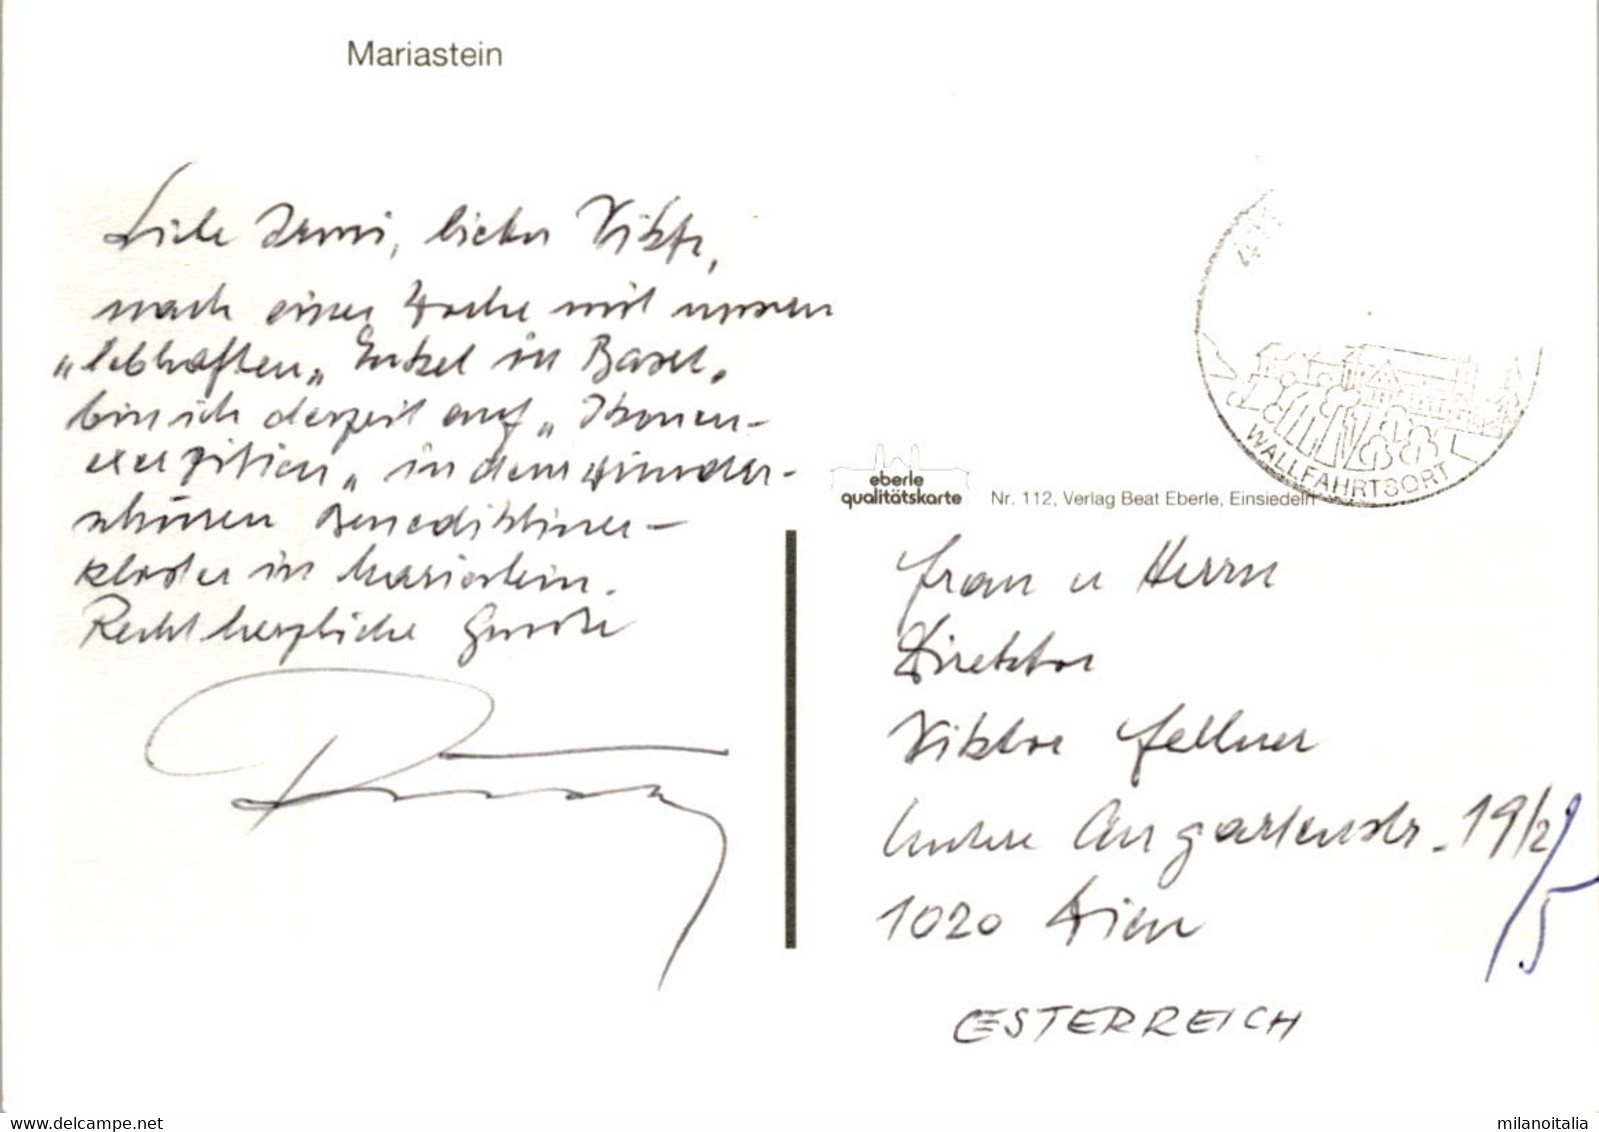 Mariastein
Liebe Irmi, lieber Viktor,
nach einer Woche mit unseren
"lebhaften" Enkel in Basel,
bin ich derzeit auf "Ikonen-
exerzitien" in dem wunder-
schönen Benediktiner-
kloster in Mariastein.
Recht herzliche Grüße
WALLFAHRTSORT
eberle
qualitätskarte
Nr. 112, Verlag Beat Eberle, Einsiedeln
Frau u Herrn
Direktor
Viktor Fellner
Untere Augartenstr. 19/2/5
1020 Wien
OESTERREICH
www.delcampe.net
milanoitalia